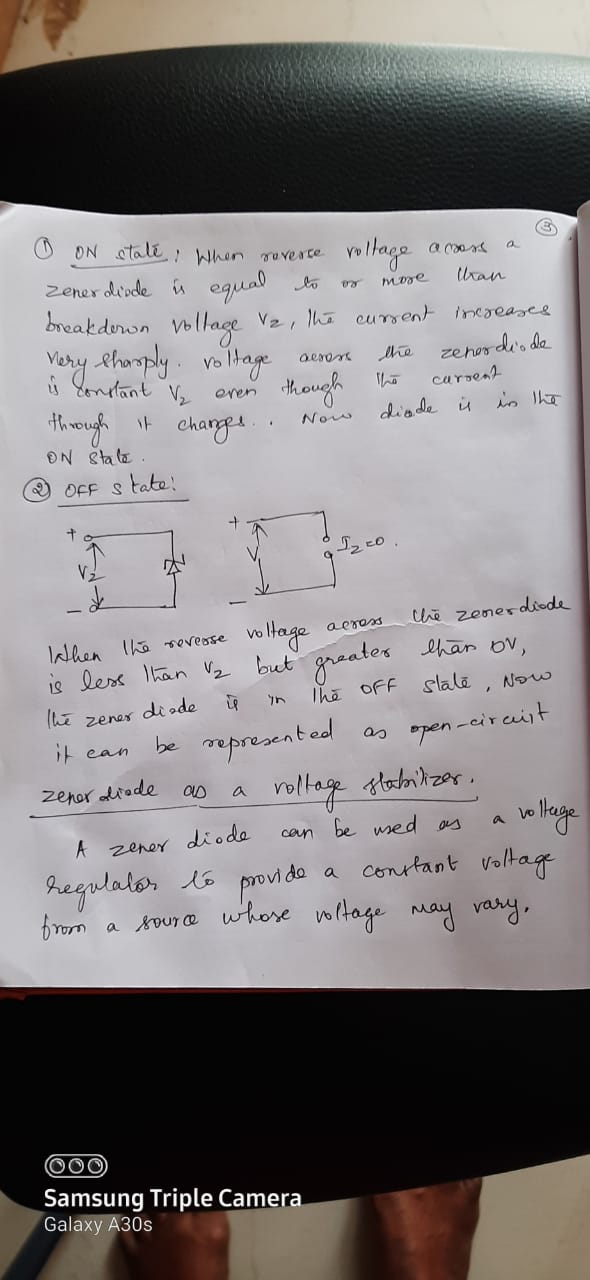 ③
① ON state : When reverse voltage across a
zener diode is equal to or more than
breakdown voltage Vz, the current increases
very sharply. voltage across the zener diode
is constant Vz even though the current
through it changes. . Now diode is in the
ON state.
② OFF state:
+ +
Vz V Iz=0.
- -
When the reverse voltage across the zener diode
is less than Vz but greater than 0V,
the zener diode is in the OFF state, Now
it can be represented as open-circuit
zener diode as a voltage stabilizer.
A zener diode can be used as a voltage
regulator to provide a constant voltage
from a source whose voltage may vary.
Samsung Triple Camera
Galaxy A30s